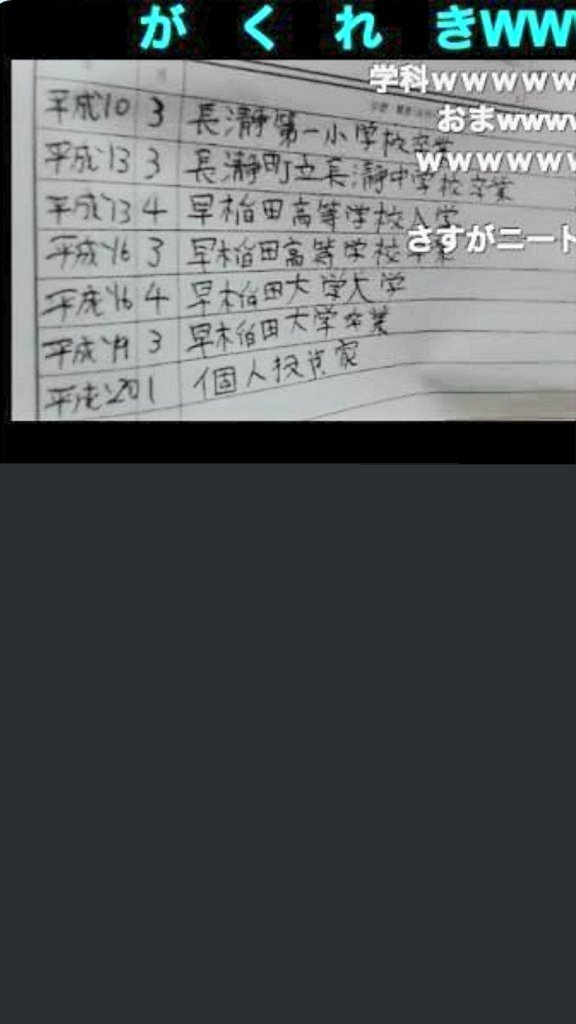 がくれきwww
学科wwwwww
おまwwww
wwwwwww
さすがニート
平成10 3 長瀞第一小学校卒業
平成13 3 長瀞町立長瀞中学校卒業
平成13 4 早稲田高等学校入学
平成16 3 早稲田高等学校卒業
平成16 4 早稲田大学入学
平成19 3 早稲田大学卒業
平成20 1 個人投資家